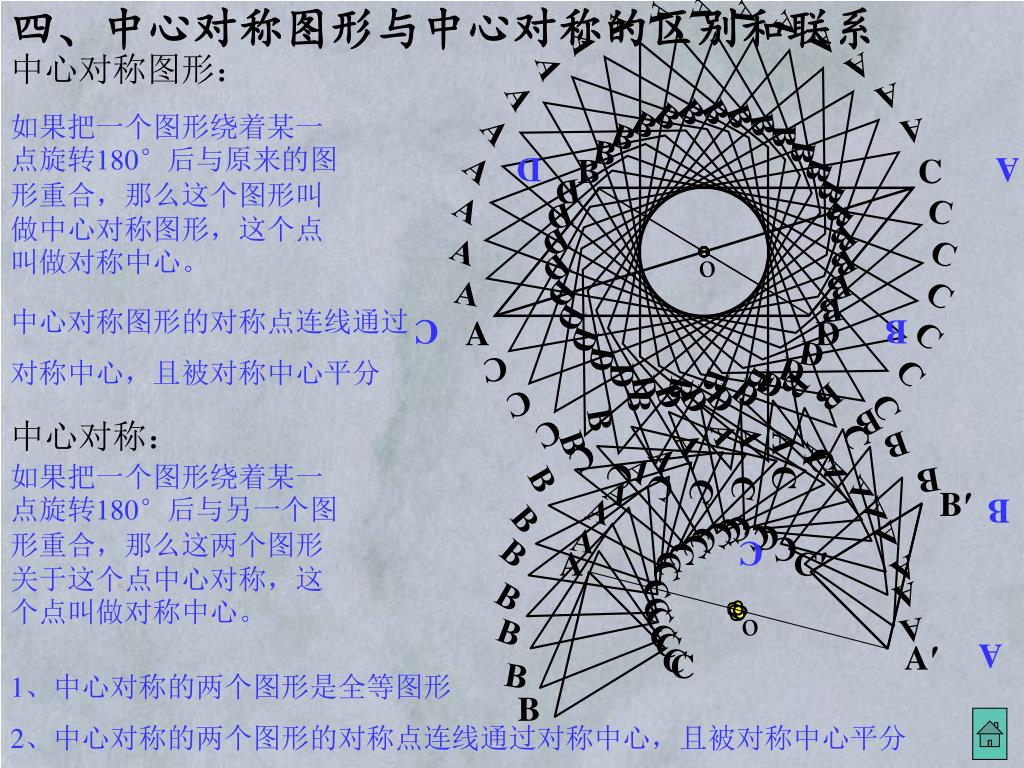 四、中心对称图形与中心对称的区别和联系
中心对称图形：
如果把一个图形绕着某一
点旋转180°后与原来的图
形重合，那么这个图形叫
做中心对称图形，这个点
叫做对称中心。
中心对称图形的对称点连线通过
对称中心，且被对称中心平分
中心对称：
如果把一个图形绕着某一
点旋转180°后与另一个图
形重合，那么这两个图形
关于这个点中心对称，这
个点叫做对称中心。
1、中心对称的两个图形是全等图形
2、中心对称的两个图形的对称点连线通过对称中心，且被对称中心平分
D
A
C
B
C
A
O
B′
B
C
O
A′
A
C
B